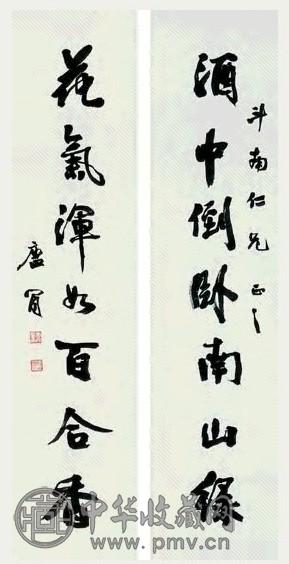 斗南仁兄正之
酒中倒卧南山綠
花氣渾如百合香
唐肎
中华收藏网
www.pmv.cn